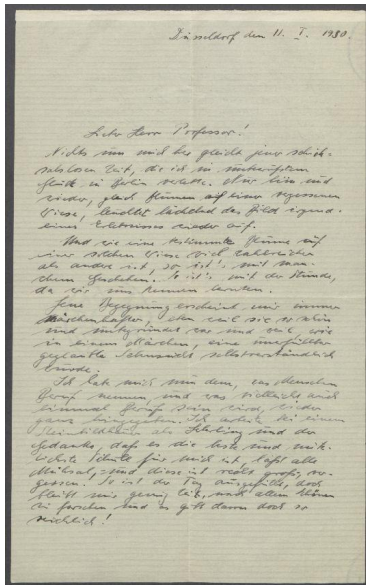 Düsseldorf den 11. I. 1930.
Lieber Herr Professor!
Nichts um mich her gleicht jener schick-
salslosen Zeit, die ich in
Glück in Berlin erlebte. Nur hin und
wieder, gleich Blumen auf einer vergessenen
Wiese, leuchtet lächelnd das Bild irgend-
eines Erlebnisses wieder auf.
Und wie eine bestimmte Blume auf
einer solchen Wiese viel zahlreicher
als andere ist, so ist's mit man-
chem Geschehen. So ist's mit der Stunde,
da wir uns kennen lernten.
Jene Begegnung erscheint mir immer
märchenhafter, eben weil sie so schön
und war und weil, wie
in einem Märchen, eine unerfüllbar
geglaubte Sehnsucht selbstverständlich
wurde.
Ich habe mich nun dem, was Menschen
Beruf nennen, und was vielleicht auch
einmal Beruf sein wird, wieder
ganz hingegeben. Ich arbeite bei einem
als Lehrling und der
Gedanke, daß es die beste und nütz-
lichste Schule für mich ist, läßt alle
Mühsal, und diese ist recht groß, ver-
gessen. So ist der Tag ausgefüllt, doch
bleibt mir genug Zeit, nach allem Schönen
zu forschen und es gibt davon doch so
reichlich!